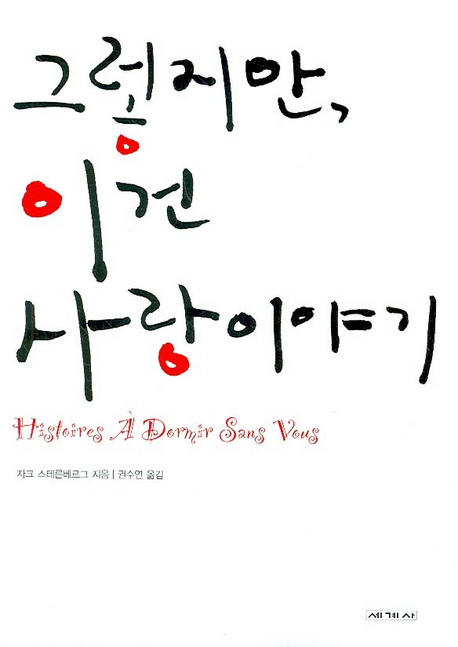 그렇지만,
이건
사랑이야기
Histoires À Dormir Sans Vous
자크 스테른베르그 지음 | 권수연 옮김
세계사